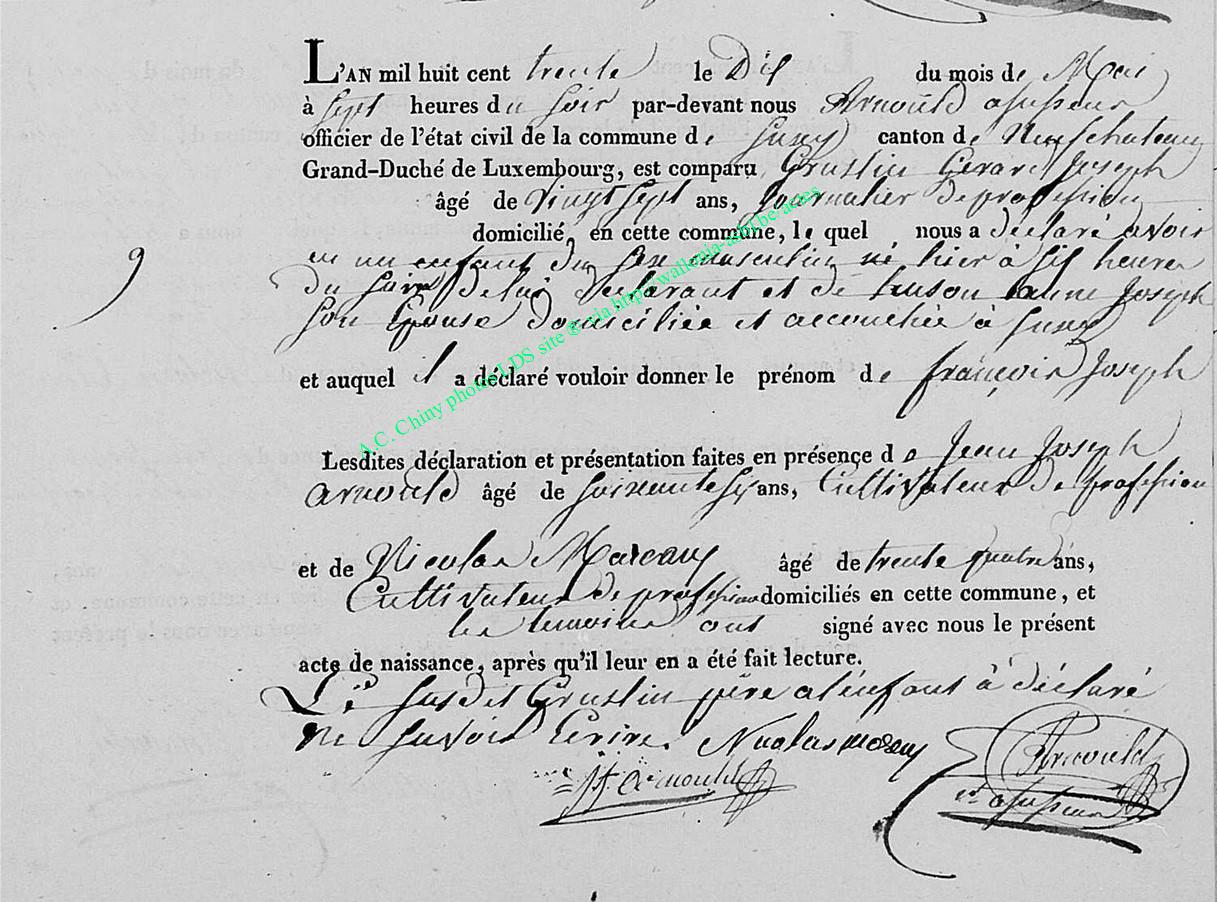 L'AN mil huit cent trente le Dix du mois de Mai
à sept heures du soir par-devant nous Arnould assesseur
officier de l'état civil de la commune de Suxy canton de Neufchateau
Grand-Duché de Luxembourg, est comparu Gruslin Gerard Joseph
âgé de vingt sept ans, Journalier de profession
domicilié, en cette commune, le quel nous a déclaré avoir
eu un enfant du sex masculin né hier à six heures
du soir de lui déclarant et de anne Joseph
son Epouse domiciliée et accouchée à Suxy
9
et auquel il a déclaré vouloir donner le prénom de françois Joseph
Lesdites déclaration et présentation faites en présence de Jean Joseph
arnould âgé de soixante six ans, Cultivateur de profession
et de Nicolas âgé de trente quatre ans,
Cultivateur de profession domiciliés en cette commune, et
les temoins ont signé avec nous le présent
acte de naissance, après qu'il leur en a été fait lecture.
Le susdit Gruslin père a lenfant à déclaré
ne savoir Ecrire Nicolas
JJ arnould Arnould
assesseur
A.C. Chiny photos LDS site via http://wallonia-asbl.be/actes